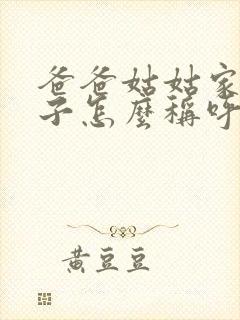 爸爸姑姑家
子怎麼稱呼
黃豆豆